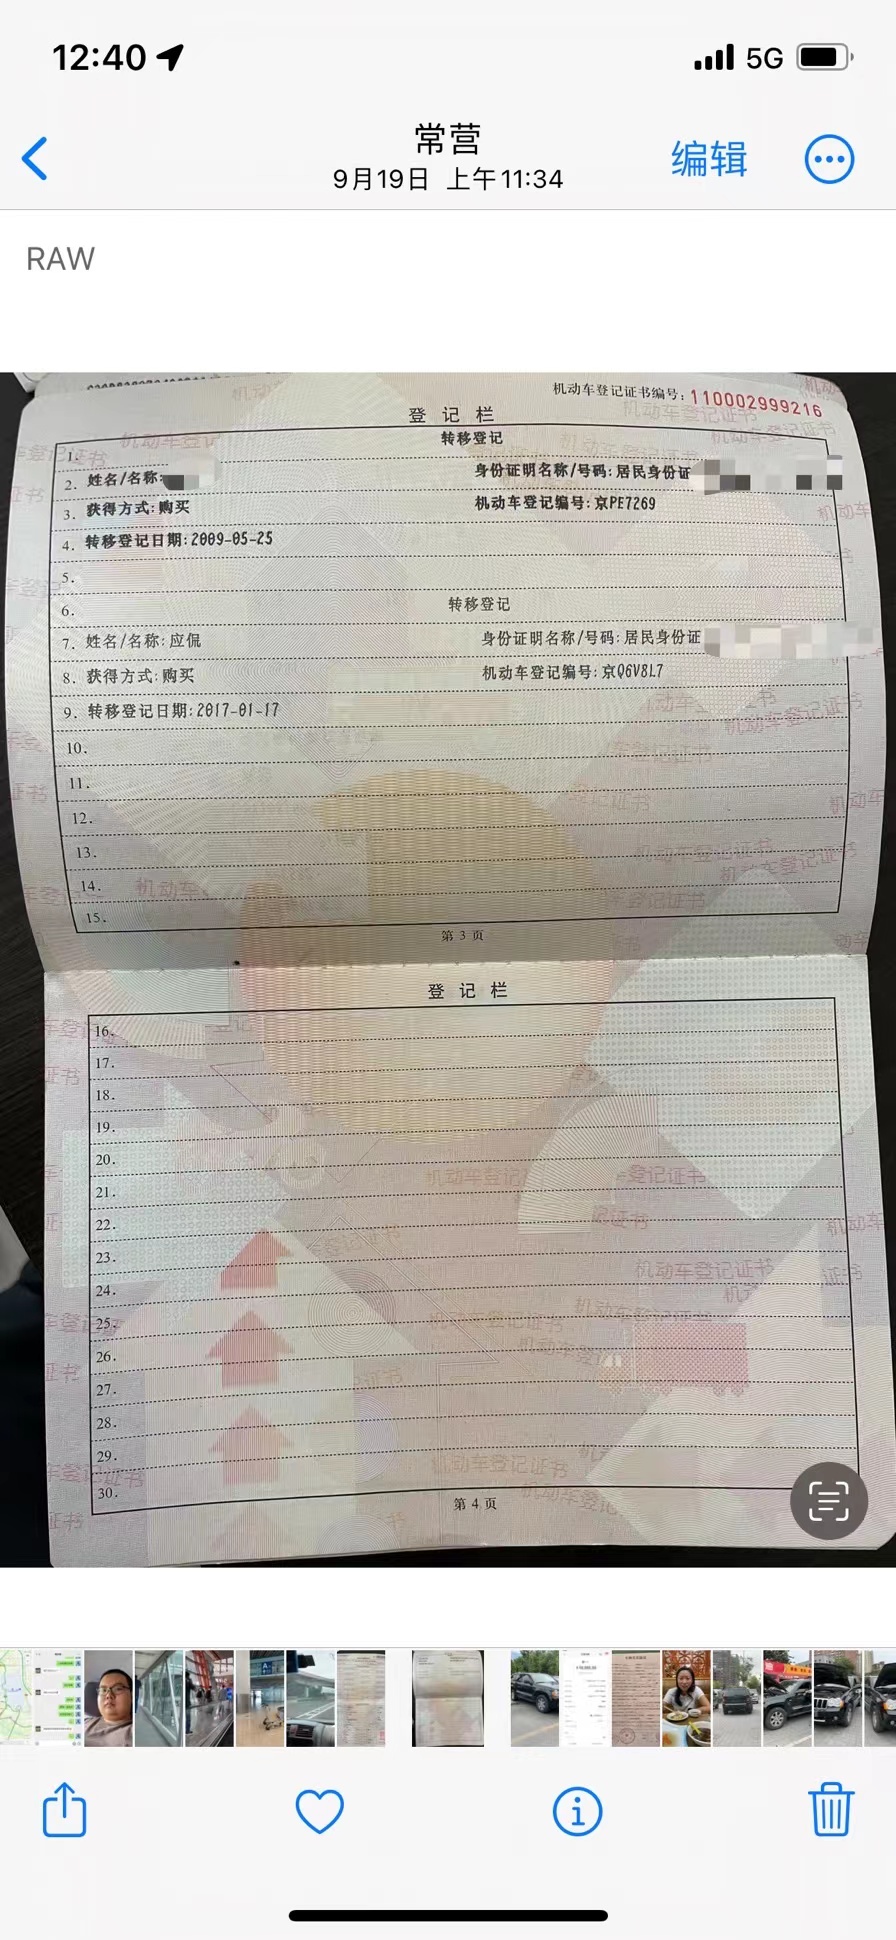 12:40
5G
常营
9月19日 上午11:34
编辑
RAW
机动车登记证书编号:110002999216
登记栏
1. 转移登记
2. 姓名/名称: 身份证明名称/号码:居民身份证
3. 获得方式:购买 机动车登记编号:京PE7269
4. 转移登记日期:2009-05-25
5.
6. 转移登记
7. 姓名/名称:应侃 身份证明名称/号码:居民身份证
8. 获得方式:购买 机动车登记编号:京Q6V8L7
9. 转移登记日期:2017-01-17
10.
11.
12.
13.
14.
15.
第3页
登记栏
16.
17.
18.
19.
20.
21.
22.
23.
24.
25.
26.
27.
28.
29.
30.
第4页